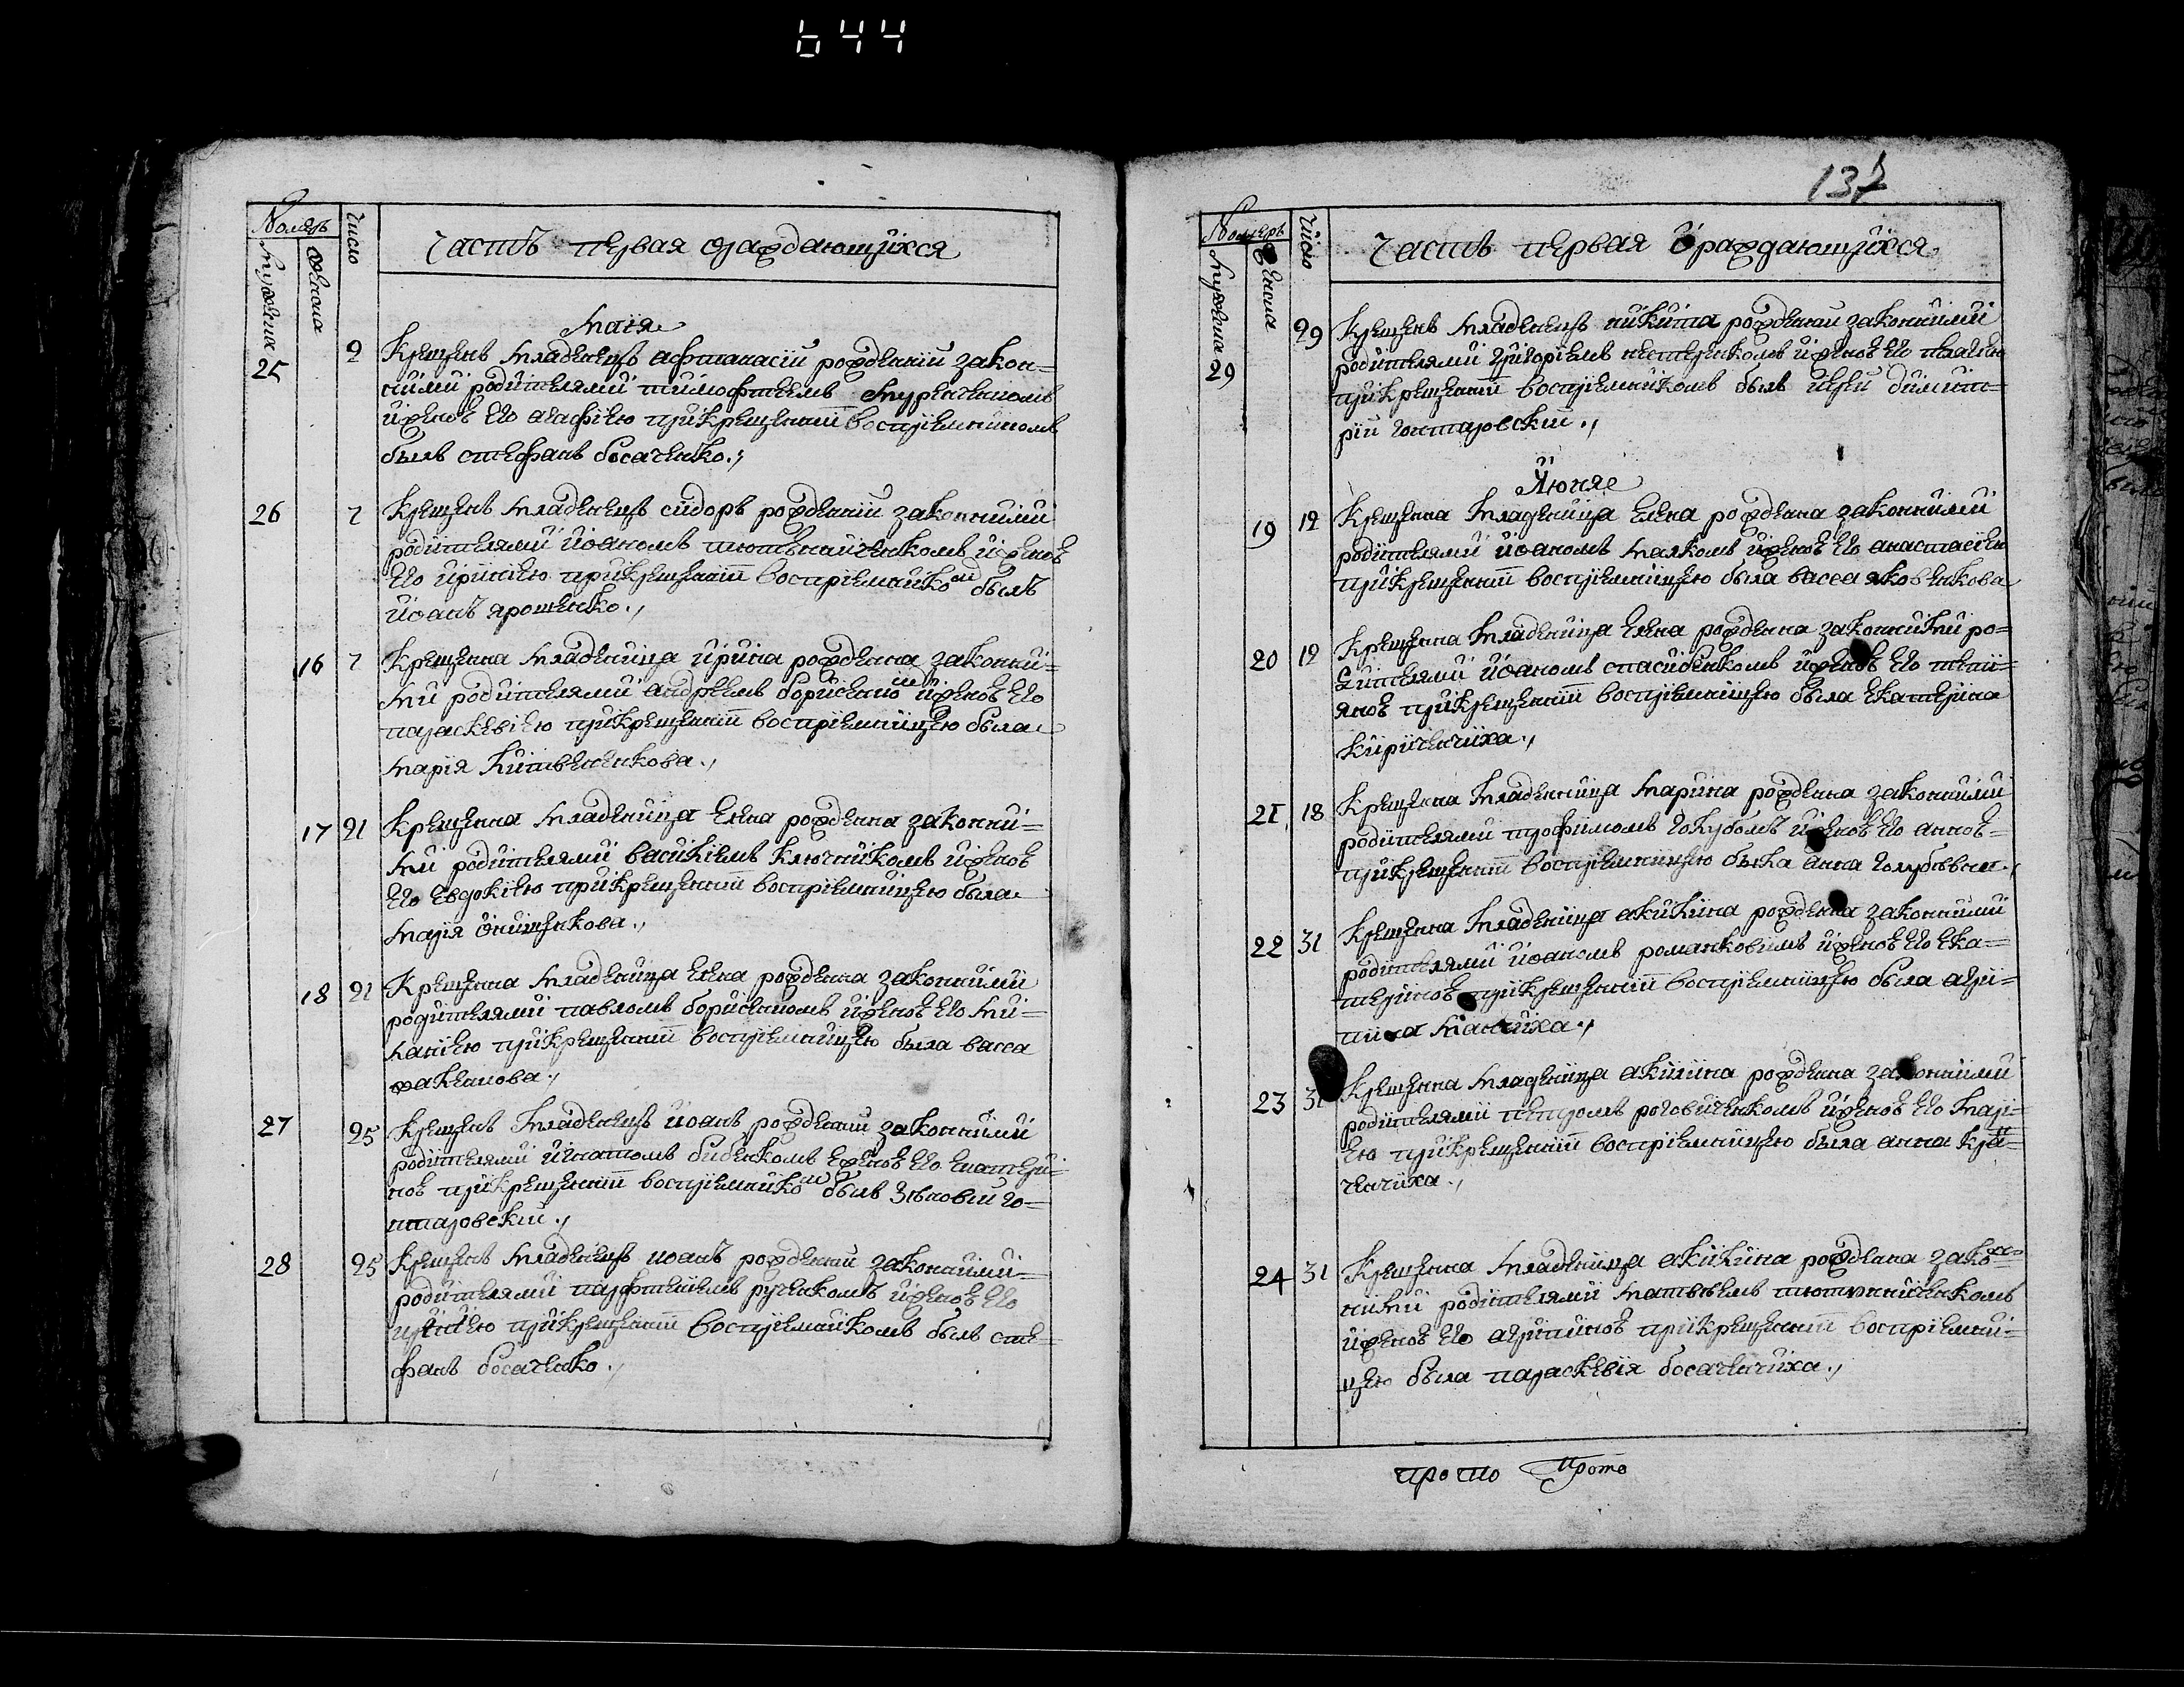 644
Номеръ
Число
Часть первая ѡраждающихся
Мужеска
Женска
Маія
25 2 Крещенъ младенецъ афтанасіи рожденіи закон=
ними родителями тимофтеемъ
и женоѣ его агафіею при крещеніи воспріемникомъ
былъ стефанъ босаченко.,
26 7 Крещенъ младенецъ сидоръ рожденіи законними
родителями иоаномъ тютюнниченкомъ и женоѣ
его іриніею при крещеніи воспріемникомъ былъ
иоанъ ярошенко.,
16 7 Крещена младеница ирина рождена законни=
ми родителями андреемъ борисенко и женоѣ его
параскевіею при крещеніи воспріемницею была
марія
17 21 Крещенна младеница елена рождена законни=
ми родителями василіемъ ключникомъ и женоѣ
его евдокіею при крещеніи воспріемницею была
марія ѻнищенкова.,
18 21 Крещена младеница елена рождена законними
родителями павломъ борисенкомъ и женоѣ его ми=
ланіею при крещеніи воспріемницею была васса
27 25 Крещенъ младенецъ иоанъ рожденіи законними
родителями игнатомъ бибенкомъ и женоѣ его екатери=
ноѣ при крещеніи воспріемникомъ былъ зѣновіи го=
нтаровскіи.,
28 25 Крещенъ младенецъ иоанъ рожденіи законними=
родителями парфтеніемъ рученкомъ и женоѣ его
іриніею при крещеніи воспріемникомъ былъ сте=
фанъ босаченко.,
137
Номеръ
Число
Часть первая ѻраждающихся
Мужеска
Женска
29 29 Крещенъ младенецъ никита рожденіи законними
родителями григоріемъ нестеренкомъ и женоѣ его
при крещеніи воспріемникомъ былъ іереи димит=
ріи гонтаровскіи.,
Июня
19 12 Крещена младеница елена рождена законними
родителями иоаномъ маякомъ и женоѣ его анастасіею
при крещеніи воспріемницею была васса яковенкова
20 12 Крещена младеница елена рождена законними ро=
дителями иоаномъ спасибенкомъ и женоѣ его тетя=
яноѣ при крещеніи воспріемницею была екатерина
кириченчиха.,
21 18 Крещена младеница марина рождена законними
родителями трофимомъ голубомъ и женоѣ его анноѣ=
при крещеніи воспріемницею была анна
22 31 Крещена младеница акилина рождена законними
родителями иоаномъ романковимъ и женоѣ его ека=
териноѣ при крещеніи воспріемницею была агри=
пина
23 31 Крещенна младеница акилина рождена законними
родителями петромъ роговиченкомъ и женоѣ его марі=
ею при крещеніи воспріемницею была анна кра=
24 31 Крещенна младеница акилина рождена закон=
ними родителями матвѣемъ тютюнниченкомъ
и женоѣ его агрипиноѣ при крещеніи воспріемни=
цею была параскевія босаченчиха.,
прото Прото